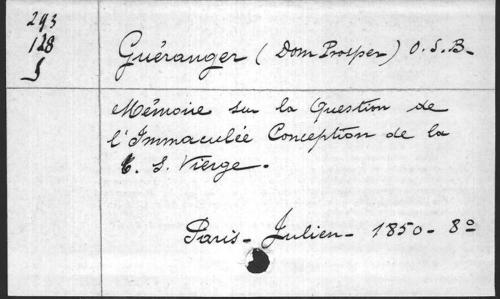 293
128
Guéranger (Dom Prosper) O.S.B-
Mémoire sur la Question de
l'Immaculée Conception de la
T. S. Vierge.
Paris- Julien- 1850- 8º